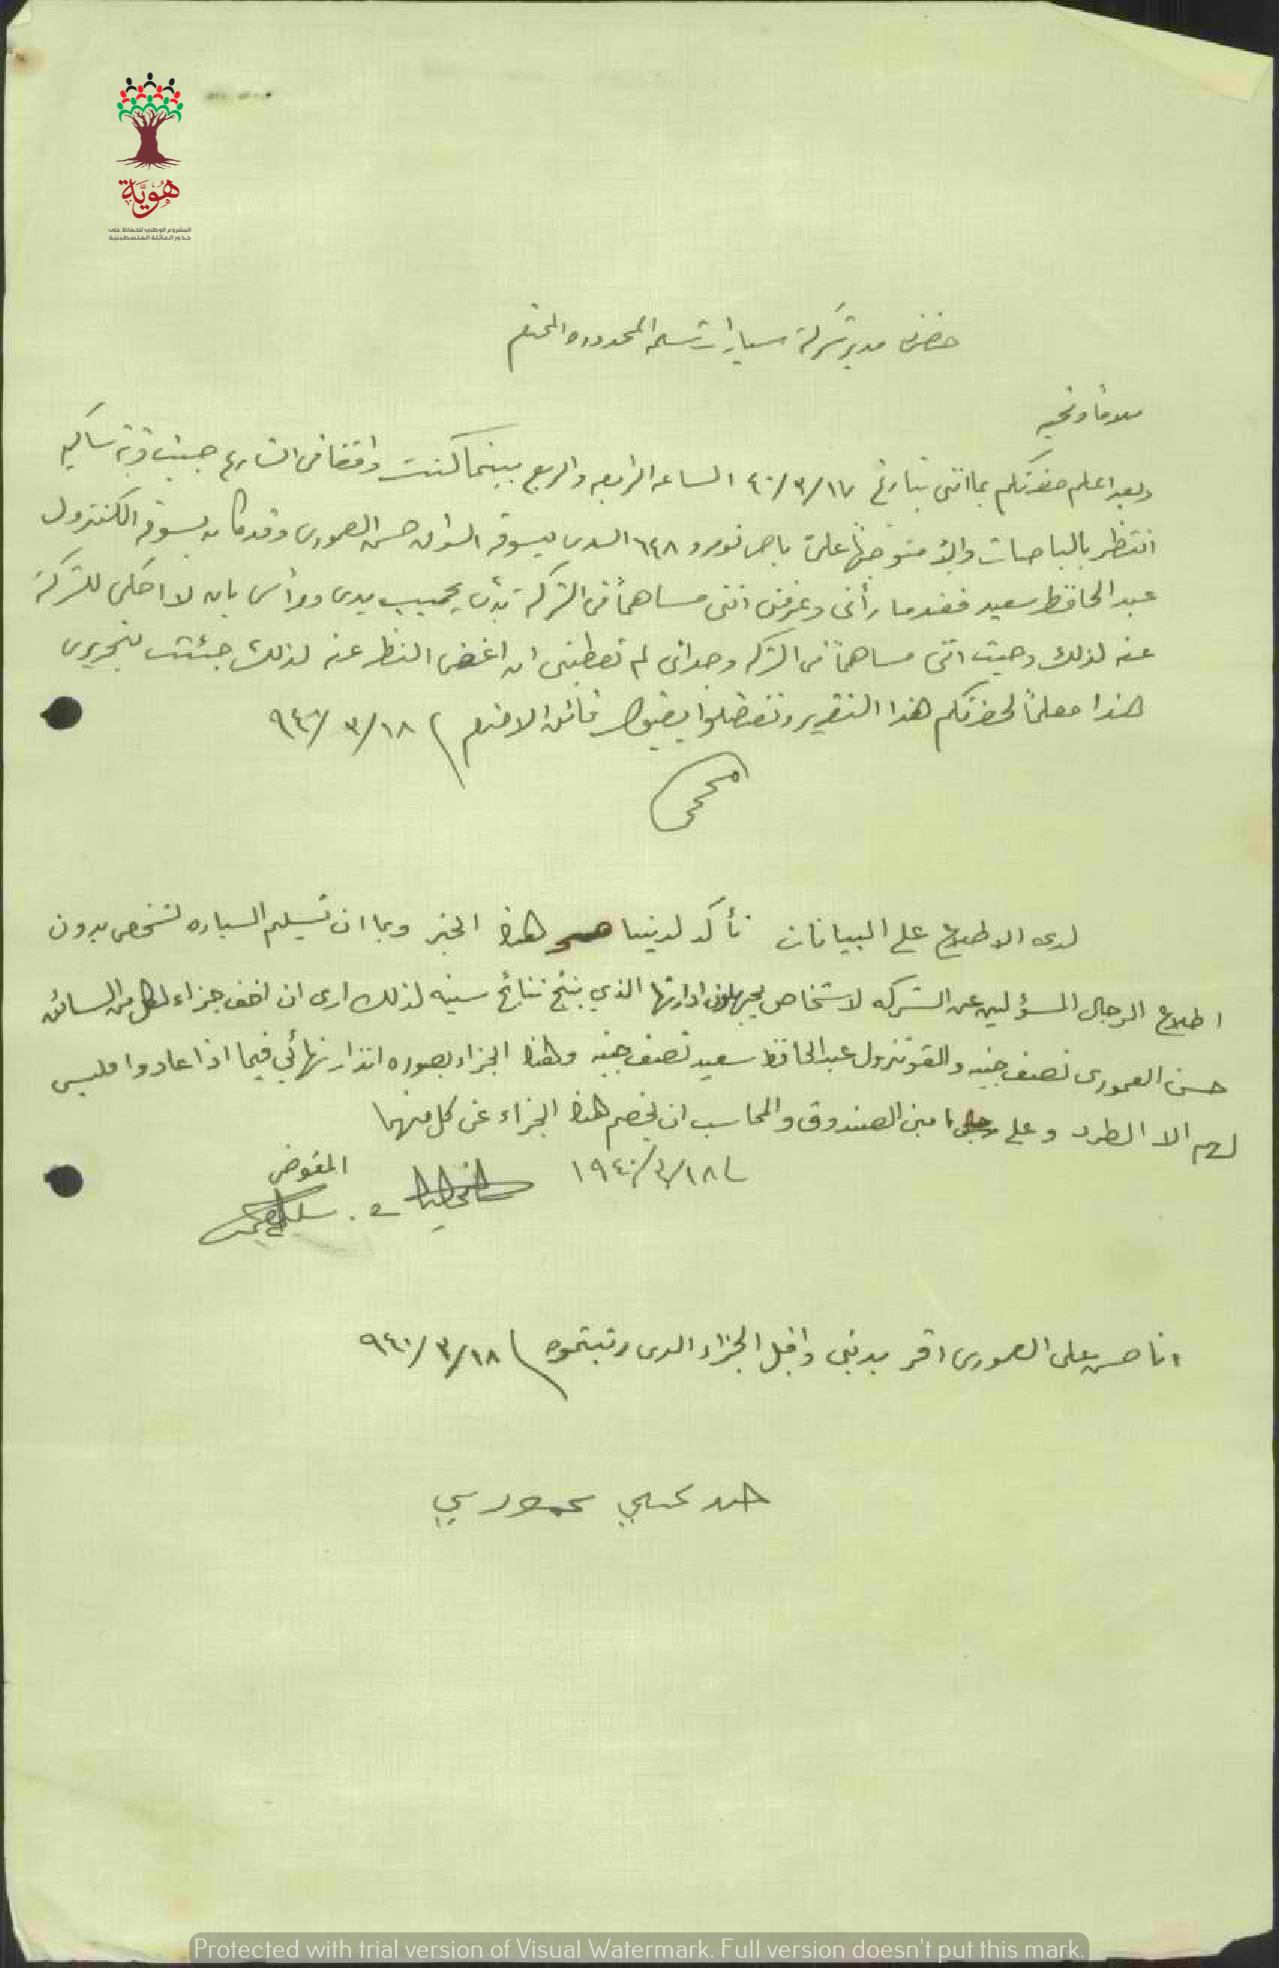 هُوِيَّة
المشروع الوطني للحفاظ على
جذور العائلة الفلسطينية
حضرة مدير شركة سيارات سلمه المحدوده المحترم
سلاما وتحيه
وبعد اعلم حضرتكم بما انني بتاريخ ٤٠/٣/١٧ الساعه الرابعه والربع بينما كنت واقفا في الشارع جنب قرية ساكيه
انتظر بالباصات والا متوجهاً علي باص نومرو ٦٤٨ الدى يسوقه السواق حسن العمورى وقد كان يسوقه الكنترول
عبد الحافظ سعيد فعندما رأني وعرفني انني مساهماً في الشركة بيدى ورأسى بان لا احكي للشركة
عنه لذلك وحيث انني مساهماً في الشركه وجداني لم تعطيني ان اغض النظر عنه لذلك جئت بتحريرى
هذا معلماً لحضرتكم هذا التقرير وتفضلوا بقبول فائق الاحترام ٩٤٠/٣/١٨
لدى الاطلاع على البيانات تأكد لدينا هذا الخبر وبما ان تسليم السياره لشخص بدون
اطلاع الرجال المسؤلين عن الشركه لاشخاص يجهلون ادارتها الذي ينتج نتائج سيئه لذلك ارى ان اخف جزاء لكل من السائق
حسن العمورى نصف جنيه والقونترول عبد الحافظ سعيد نصف جنيه وهذا الجزاء بصوره انذار نهائي فيما اذا عادوا فليس
لهم الا الطرد وعلى امين الصندوق والمحاسب ان يخصم هذا الجزاء عن كل منهما
١٩٤٠/٣/١٨
المفوض
انا حسن على العمورى اقر بدنبى واقبل الجزاء الدى رتبتموه ٩٤٠/٣/١٨
حسن علي عموري
Protected with trial version of Visual Watermark. Full version doesn't put this mark.